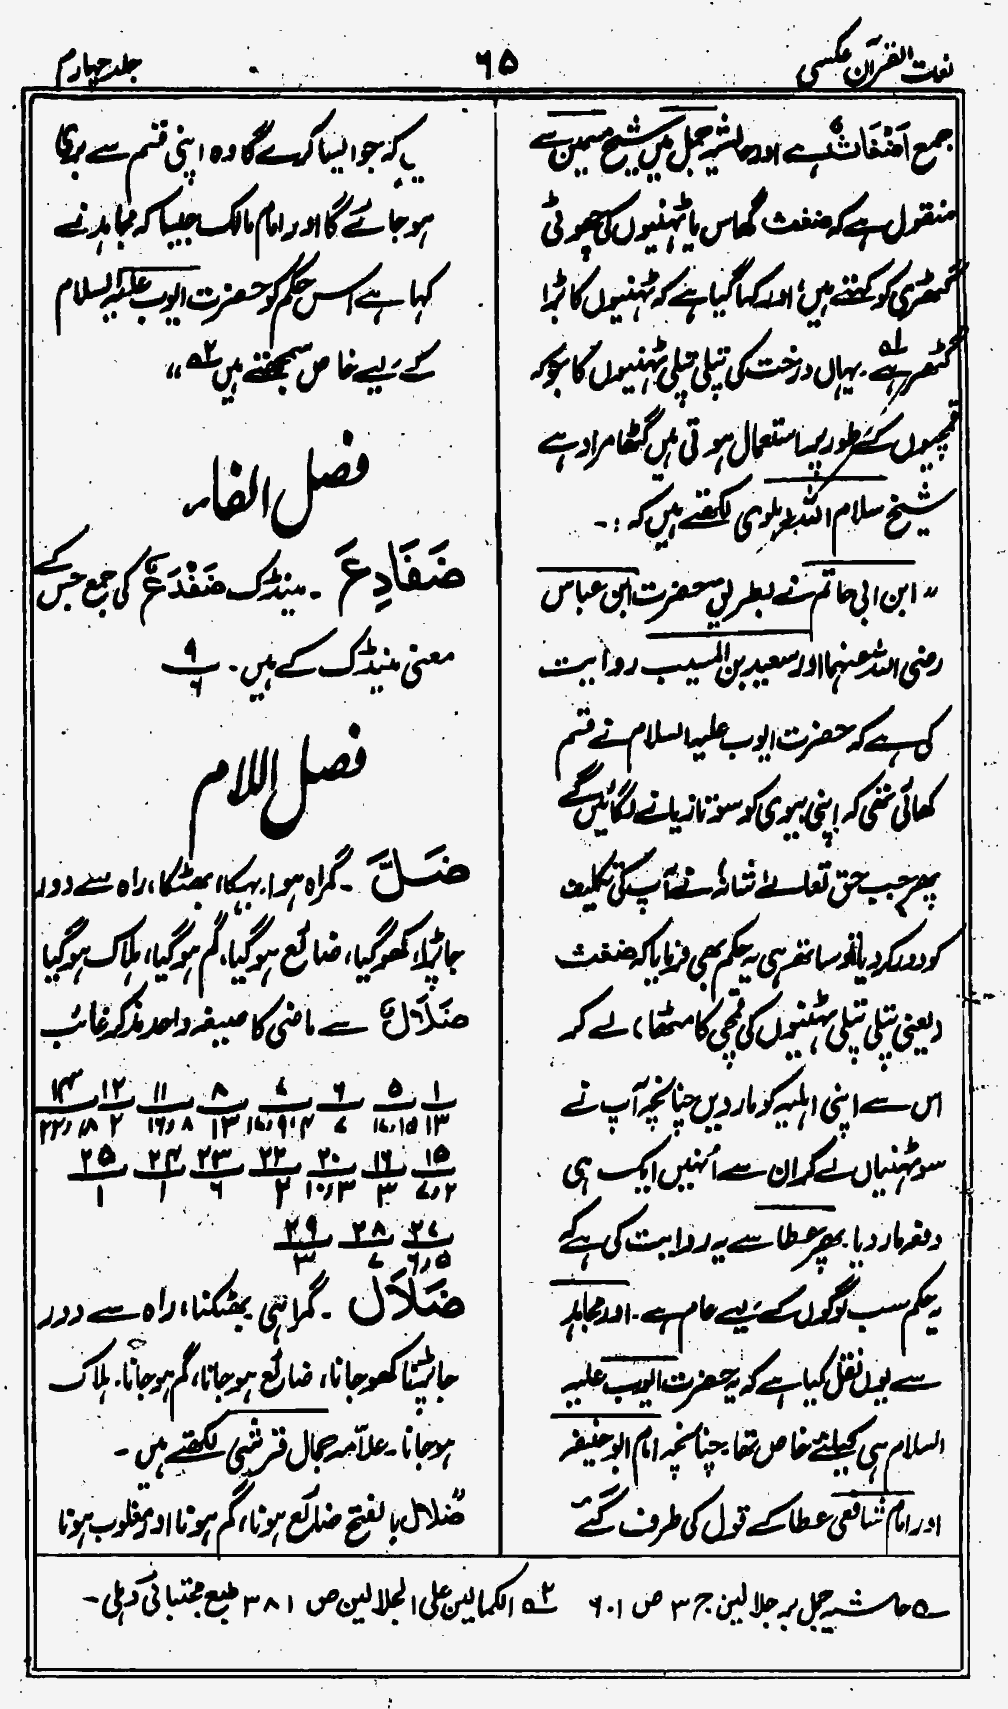 لغات القرآن عکسی
۶۵
جلد چہارم
جمع اَضْغَاثٌ ہے اور حاشیہ جمل میں شیخ سمین سے
منقول ہے کہ ضغث گھاس یا ٹہنیوں کی چھوٹی
گٹھڑی کو کہتے ہیں، اور کہا گیا ہے کہ ٹہنیوں کا بڑا
گٹھر ہے ۱ھ۔ یہاں درخت کی پتلی پتلی ٹہنیوں کا جو کہ
قمچیوں کے طور پر استعمال ہوتی ہیں گٹھا مراد ہے
شیخ سلام اللہ دہلوی لکھتے ہیں کہ :۔
” ابن ابی حاتم نے بطریق حضرت ابن عباس
رضی اللہ عنہما اور سعید بن المسیب روایت
کی ہے کہ حضرت ایوب علیہ السلام نے قسم
کھائی تھی کہ اپنی بیوی کو سو تازیانے لگائیں گے
پھر جب حق تعالےٰ شانہٗ نے آپ کی تکلیف
کو دور کر دیا تو ساتھ ہی یہ حکم بھی فرمایا کہ ضغث
(یعنی پتلی پتلی ٹہنیوں کی قمچی کا مٹھا) لے کر
اس سے اپنی اہلیہ کو مار دیں چنانچہ آپ نے
سو ٹہنیاں لے کر ان سے اُنہیں ایک ہی
دفعہ مار دیا۔ پھر عطا سے یہ روایت کی ہے کہ
یہ حکم سب لوگوں کے لیے عام ہے۔ اور مجاہد
سے یوں نقل کیا ہے کہ یہ حضرت ایوب علیہ
السلام ہی کیلئے خاص تھا۔ چنانچہ امام ابو حنیفہ
اور امام شافعی عطا کے قول کی طرف گئے
یا کہ جو ایسا کرے گا وہ اپنی قسم سے بری
ہو جائے گا اور امام مالک جیسا کہ مجاہد نے
کہا ہے اس حکم کو حضرت ایوب علیہ السلام
کے لیے خاص سمجھتے ہیں ۲ھ “
فصل الفاء
ضَفَادِعَ ۔ مینڈک ضَفْدَعٌ کی جمع جس کے
معنی مینڈک کے ہیں۔ ۹/۶
فصل اللام
ضَلَّ ۔ گمراہ ہوا۔ بہکا، بھٹکا، راہ سے دور
جا پڑا، کھو گیا، ضائع ہو گیا، گم ہو گیا، ہلاک ہو گیا
ضَلَالٌ سے ماضی کا صیغہ واحد مذکر غائب
۱/۱۳ ۵/۱۵،۱۷ ۶/۷ ۷/۴،۹،۱۷ ۸/۱۳ ۱۱/۸،۱۶ ۱۲/۲ ۱۴/۱۸،۲۲
۱۵/۲،۷ ۱۶/۳ ۲۰/۳،۱۰ ۲۲/۲ ۲۳/۶ ۲۴/۱ ۲۵/۱
۲۷/۵،۶ ۲۸/۷ ۲۹/۳
ضَلَال ۔ گمراہی بھٹکنا، راہ سے دور
جا پڑنا کھو جانا، ضائع ہو جانا، گم ہو جانا۔ ہلاک
ہو جانا۔ علامہ جمال قرشی لکھتے ہیں ۔
”ضلال بالفتح ضائع ہونا، گم ہونا اور مغلوب ہونا
۱ھ حاشیہ جمل بر جلالین ج ۳ ص ۶۰۱ ۲ھ الکمالین علی الجلالین ص ۳۸۱ طبع مجتبائی دہلی۔